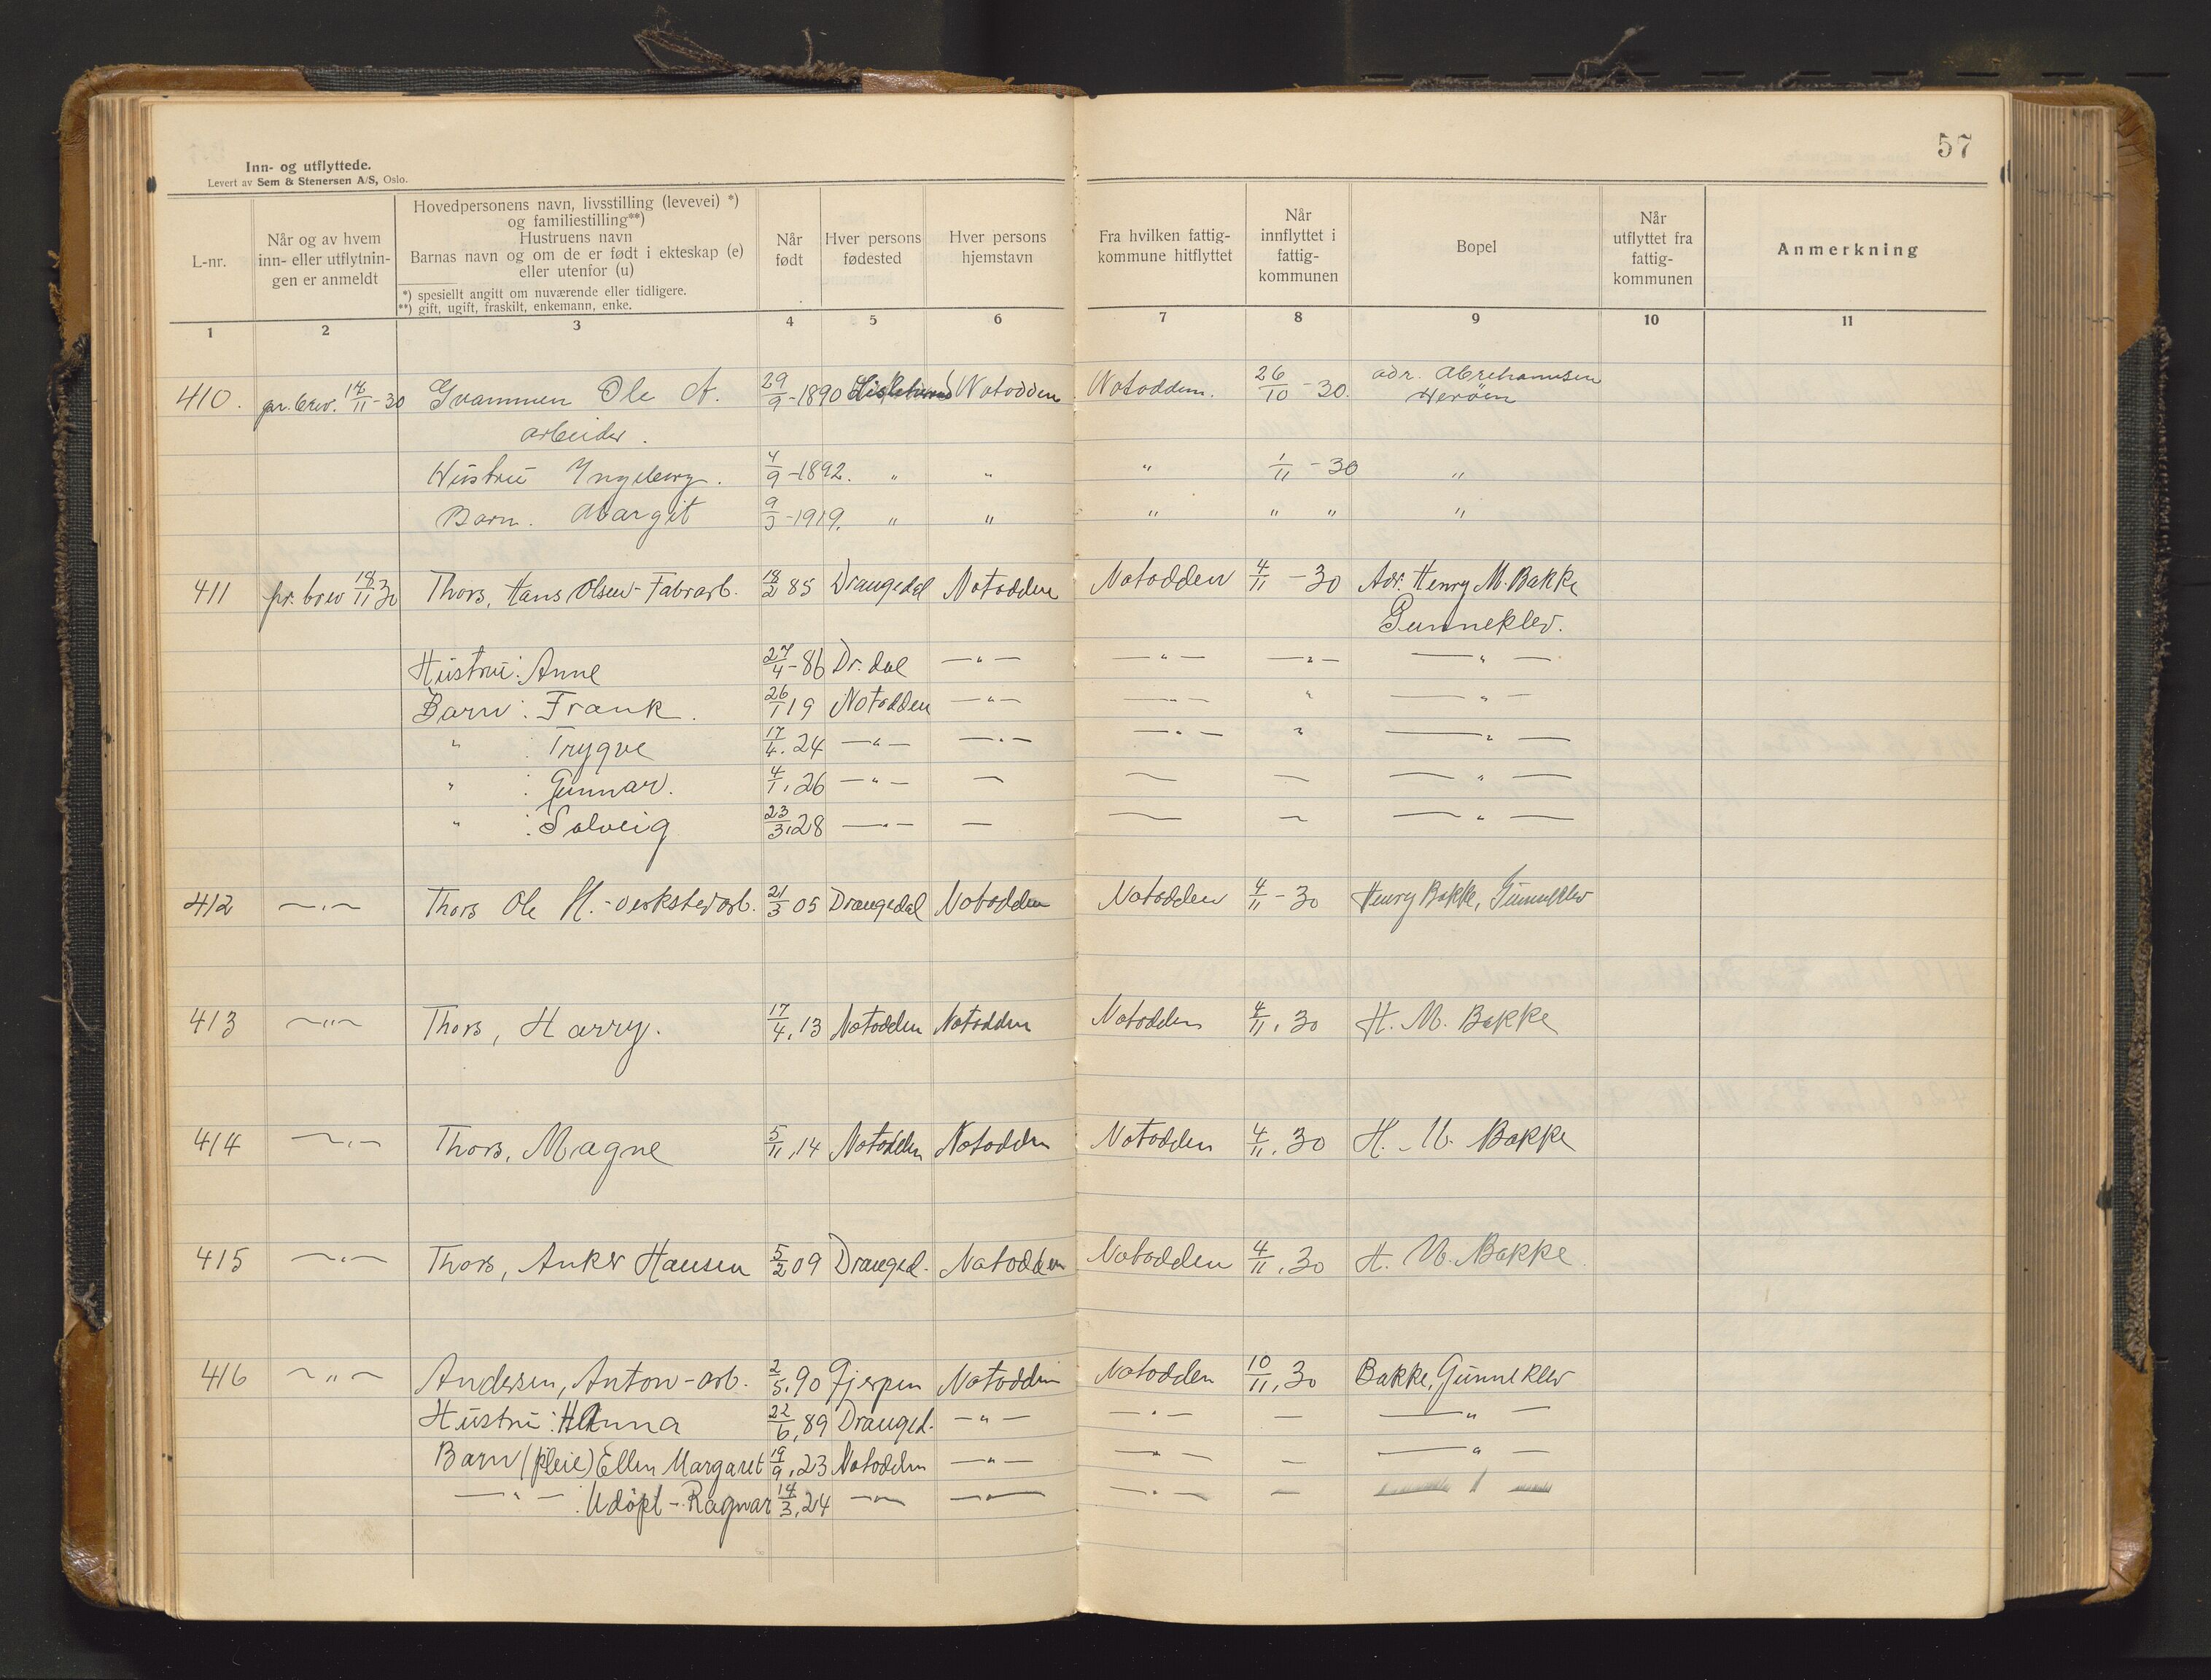 57
Inn- og utflyttede.
Levert av Sem & Stenersen A/S, Oslo.
L-nr.
Når og av hvem
inn- eller utflytnin-
gen er anmeldt
Hovedpersonens navn, livsstilling (levevei) *)
og familiestilling**)
Hustruens navn
Barnas navn og om de er født i ekteskap (e)
eller utenfor (u)
*) spesiellt angitt om nuværende eller tidligere.
**) gift, ugift, fraskilt, enkemann, enke.
Når
født
Hver persons
fødested
Hver persons
hjemstavn
Fra hvilken fattig-
kommune hitflyttet
Når
innflyttet i
fattig-
kommunen
Bopel
Når
utflyttet fra
fattig-
kommunen
Anmerkning
1 2 3 4 5 6 7 8 9 10 11
410. pr. brev. 18/11-30 Gvammen Ole A. 29/9-1890 Notodden Notodden. 26/10-30. adr. Abrehamsen
Herøen
arbeider.
Hustru Ingeborg. 4/9-1892. " " " 1/11-30 "
Barn. Margit 9/3-1919. " " " " " "
411 pr. brev 18/11 30 Thors, Hans Olsen- Fabrarb. 18/2 85 Drangedal Notodden Notodden 4/11-30 Adr. Henry M. Bakke
Gunneklev.
Hustru: Anne 27/4-86 Dr.dal —"— —"— —"— —"—
Barn: Frank. 26/1 19 Notodden —"— —"— " —"—
" : Trygve 17/4. 24 —"— —"— —"— " —"—
" : Gunnar. 4/1. 26 —"— — — — —"—
" : Solveig 23/3. 28 —"— — — — —"—
412 —"— Thors Ole H.- verkstedarb. 21/3 05 Drangedal Notodden Notodden 4/11-30 Henry Bakke, Gunneklev
413 —"— Thors, Harry. 17/4. 13 Notodden Notodden Notodden 4/11. 30 H. M. Bakke
414 —"— Thors, Magne 5/11. 14 Notodden Notodden Notodden 4/11. 30 H. M. Bakke
415 —"— Thors, Anker Hansen 5/2 09 Dranged. Notodden Notodden 4/11. 30 H. M. Bakke
416 —"— Andersen, Anton - arb. 2/5. 90 Gjerpen Notodden Notodden 10/11. 30 Bakke, Gunneklev
Hustru: Hanna 22/6. 89 Dranged. —"— —"— — —"—
Barn (pleie) Ellen Margaret 19/9. 23 Notodden —"— —"— — —"—
—"— : Udøpt - Ragnar 14/3. 24 —"— —"— —"— — —"—